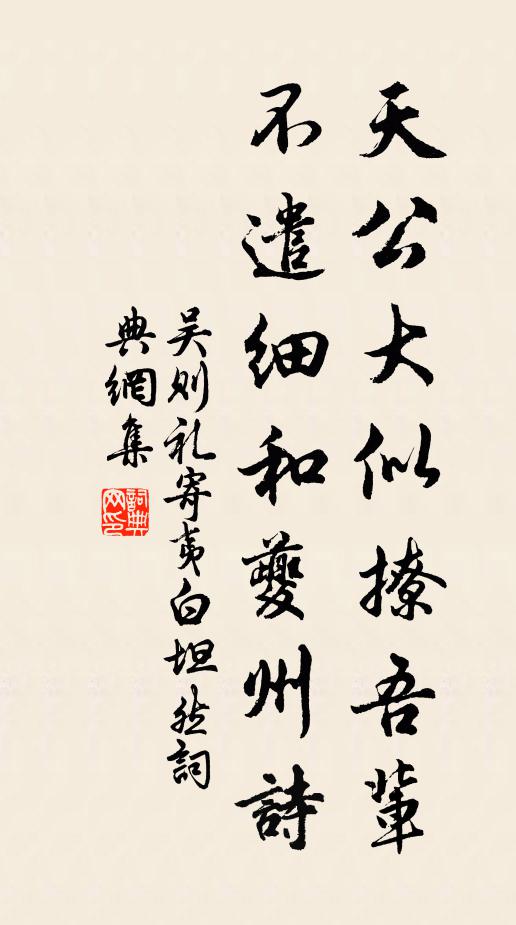 天公大似撩吾輩
不遣細和夔州詩
吳則礼寄夷白坦然詞
典網集
詞典
网印